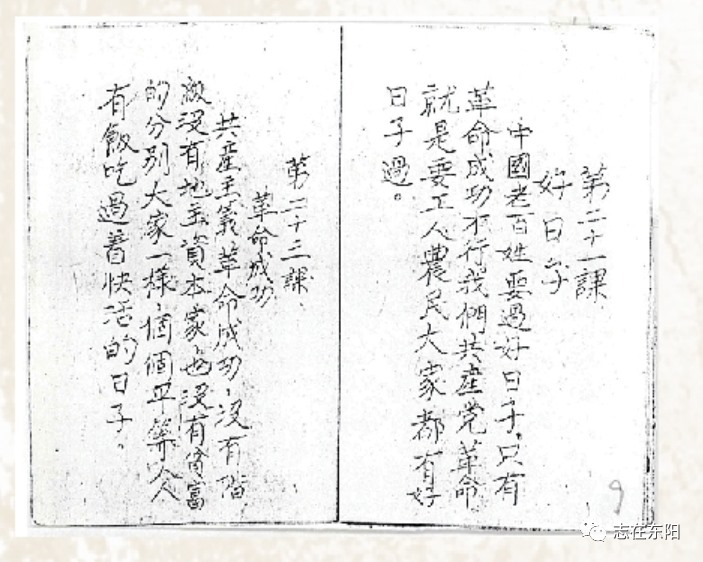 第二十一課
好日子
中國老百姓要過好日子，只有
革命成功才行。我們共産党革命
就是要工人農民大家都有好
日子過。
第二十二課
革命成功
共産主義革命成功，沒有階
級沒有地主資本家也沒有貧富
的分别大家一樣，個個平等人人
有飯吃過着快活的日子。
9
志在东阳